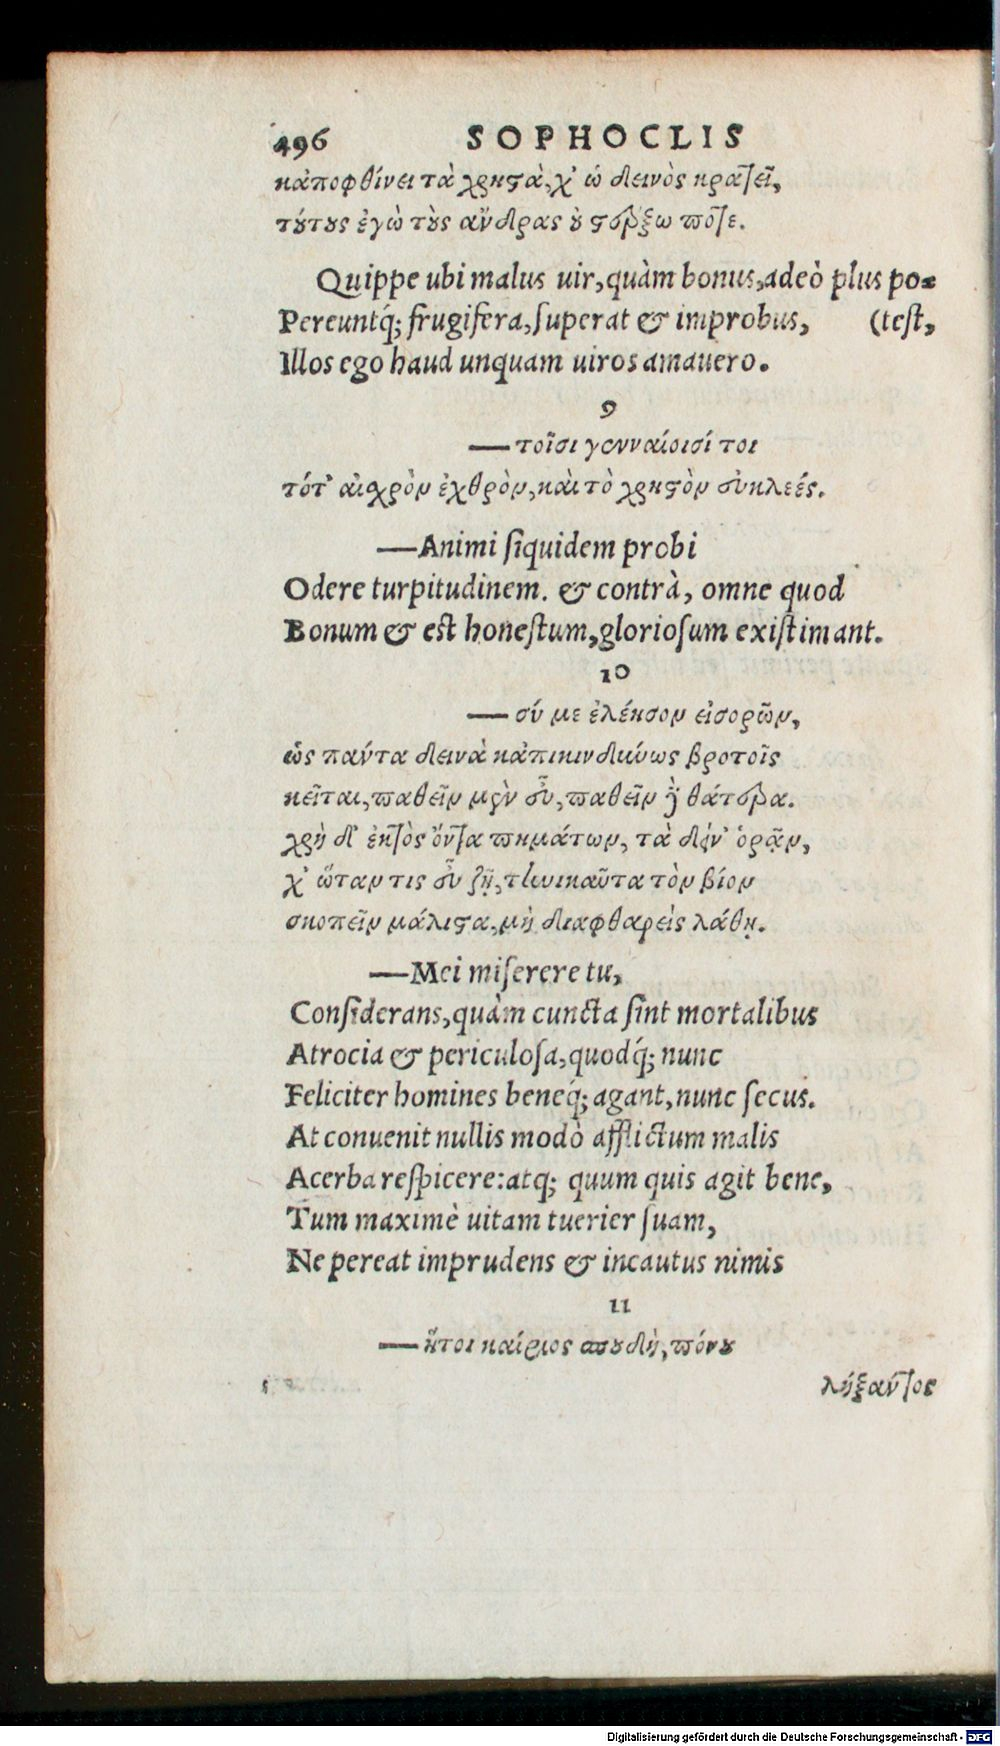 496 SOPHOCLIS
κἀποφθίνει τὰ χρηϛὰ, χ' ὡ δεινὸς κρατεῖ,
τούτους ἐγὼ τοὺς ἄνδρας οὐ ϛέρξω ποτε.
Quippe ubi malus uir, quàm bonus, adeò plus po-
Pereuntq́; frugifera, superat & improbus, (test,
Illos ego haud unquam uiros amauero.
9
— τοῖσι γενναίοισί τοι
τότ' αἰσχρὸν ἐχθρὸν, καὶ τὸ χρηϛὸν εὐκλεές.
—Animi siquidem probi
Odere turpitudinem. & contrà, omne quod
Bonum & est honestum, gloriosum existimant.
10
— σύ με ἐλέησον εἰσορῶν,
ὡς πάντα δεινὰ κἀπικινδύνως βροτοῖς
κεῖται, παθεῖν μὲν εὖ, παθεῖν δὲ θάτερα.
χρὴ δ' ἐκτὸς ὄντα πημάτων, τὰ δείν' ὁρᾷν,
χ' ὥταν τις εὖ ζῇ, τηνικαῦτα τὸν βίον
σκοπεῖν μάλιϛα, μὴ διαφθαρεὶς λάθῃ.
—Mei miserere tu,
Considerans, quàm cuncta sint mortalibus
Atrocia & periculosa, quodq́; nunc
Feliciter homines beneq́; agant, nunc secus.
At conuenit nullis modò afflictum malis
Acerba respicere: atq; quum quis agit bene,
Tum maximè uitam tuerier suam,
Ne pereat imprudens & incautus nimis
11
— ἤτοι καίριος σπουδὴ, πόνου
λήξαντος
Digitalisierung gefördert durch die Deutsche Forschungsgemeinschaft - DFG